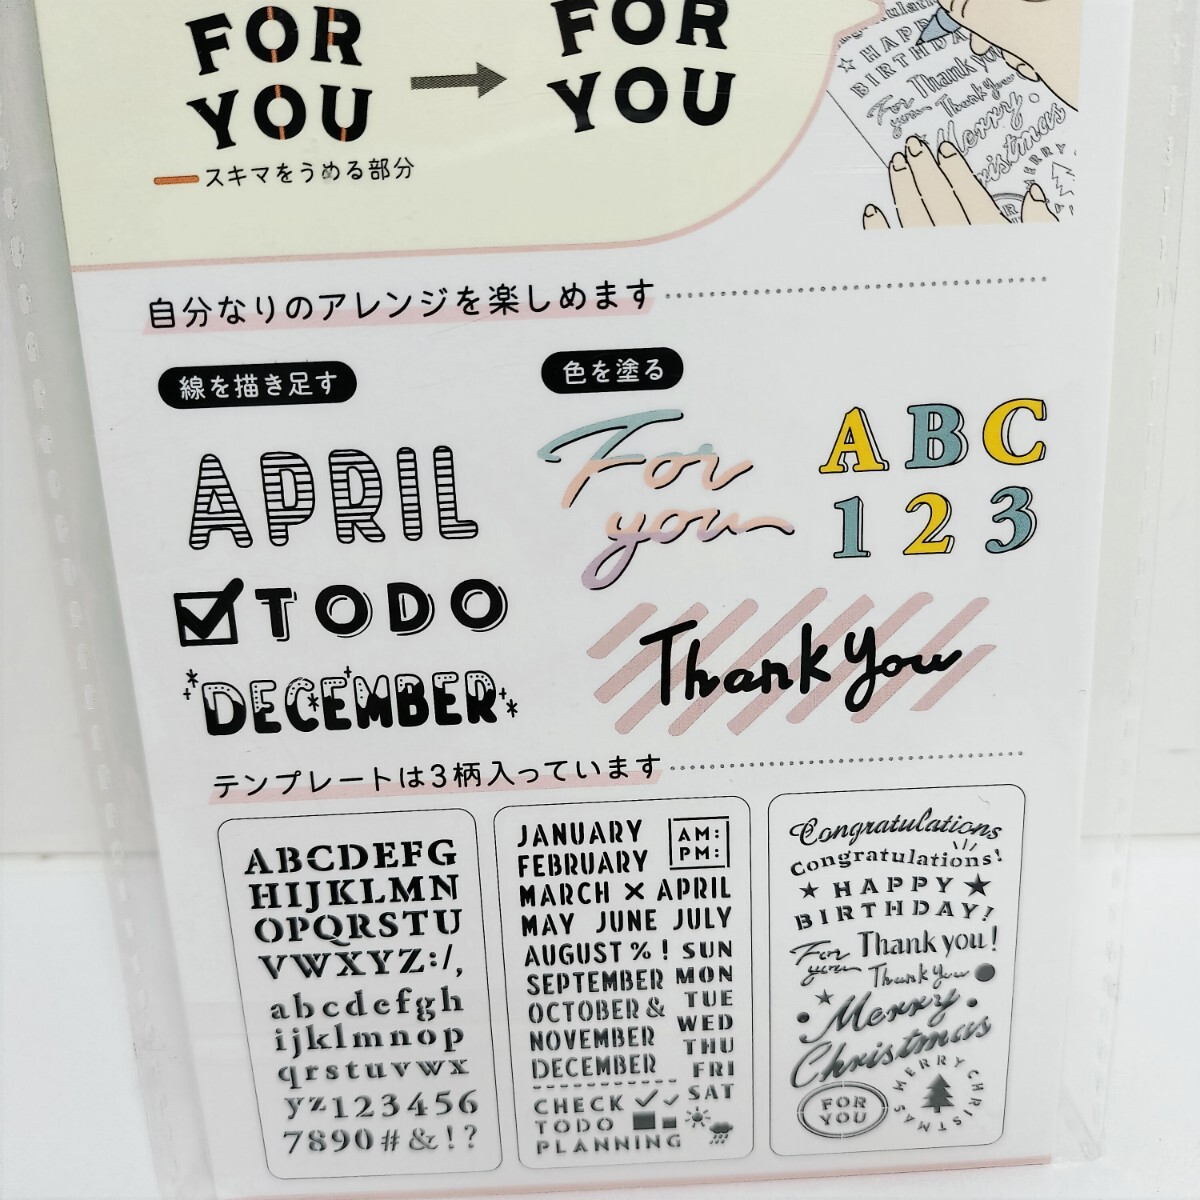 FOR
YOU
FOR
YOU
スキマをうめる部分
HAPPY
BIRTHDA
For
you
Thank you
Thank you
Merry
Christmas
MERRY
自分なりのアレンジを楽しめます
線を描き足す
色を塗る
APRIL
TODO
DECEMBER
For
you
ABC
123
Thank you
テンプレートは3柄入っています
ABCDEFG
HIJKLMN
OPQRSTU
VWXYZ:/,
abcdefgh
ijklmnop
qrstuvwx
yz123456
7890#&!?
JANUARY
FEBRUARY
AM:
PM:
MARCH × APRIL
MAY JUNE JULY
AUGUST % ! SUN
SEPTEMBER MON
OCTOBER & TUE
NOVEMBER WED
DECEMBER THU
FRI
CHECK SAT
TODO
PLANNING
Congratulations
Congratulations!
★ HAPPY ★
BIRTHDAY!
For
you
Thank you!
Thank you
Merry
Christmas
FOR
YOU
MERRY CHRISTMAS